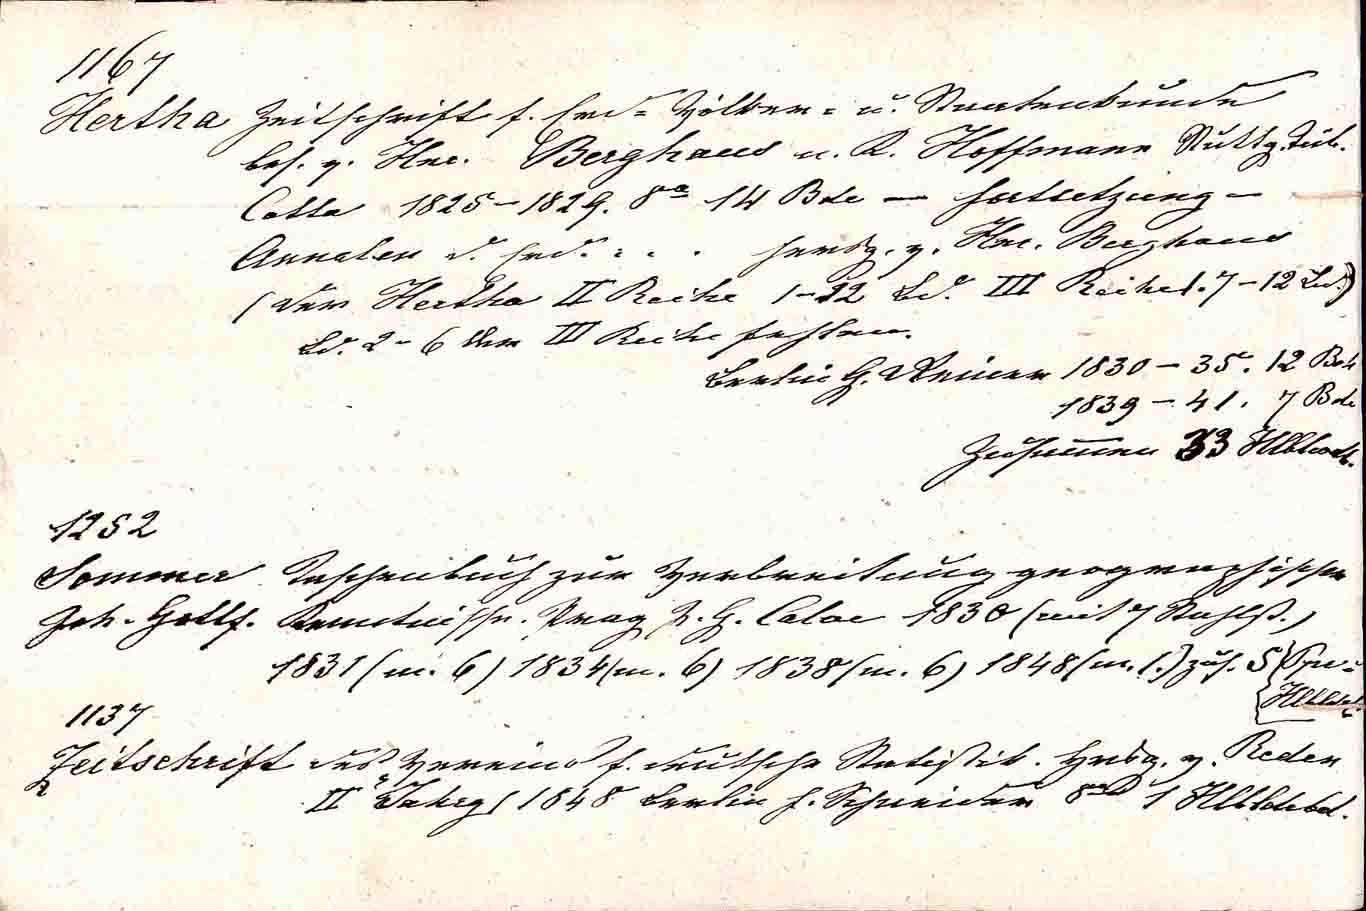 1167
Hertha Zeitschrift f. Erd= Völker= u. Staatenkunde
bes. v. Hnr. Berghaus u. K. Hoffmann Stuttg. Tüb.
Cotta 1825–1829. 8° 14 Bde — Fortsetzung –
Annalen d. Erd. . . . herausg. v. Hnr. Berghaus
(der Hertha II Reihe 1–12 Bd. III Reihe 1. 7–12 Bd.)
Bd. 2–6 der III Reihe fehlen.
Berlin G. Reimer 1830–35. 12 Bde
1839–41. 7 Bde
Zusammen 33 Hlblwdb.
1252
Sommer Taschenbuch zur Verbreitung geographischer
Joh. Gottf. Kenntnisse. Prag J. G. Calve 1830 (mit 7 Stahlst.)
1831 (m. 6) 1834 (m. 6) 1838 (m. 6) 1848 (m. 1.) zus. 5
1137
Zeitschrift des Vereins f. deutsche Statistik. Hrsg. v. Reden
II Jahrg 1848 Berlin f. Schneider 8° 1 Hlbldrbd.